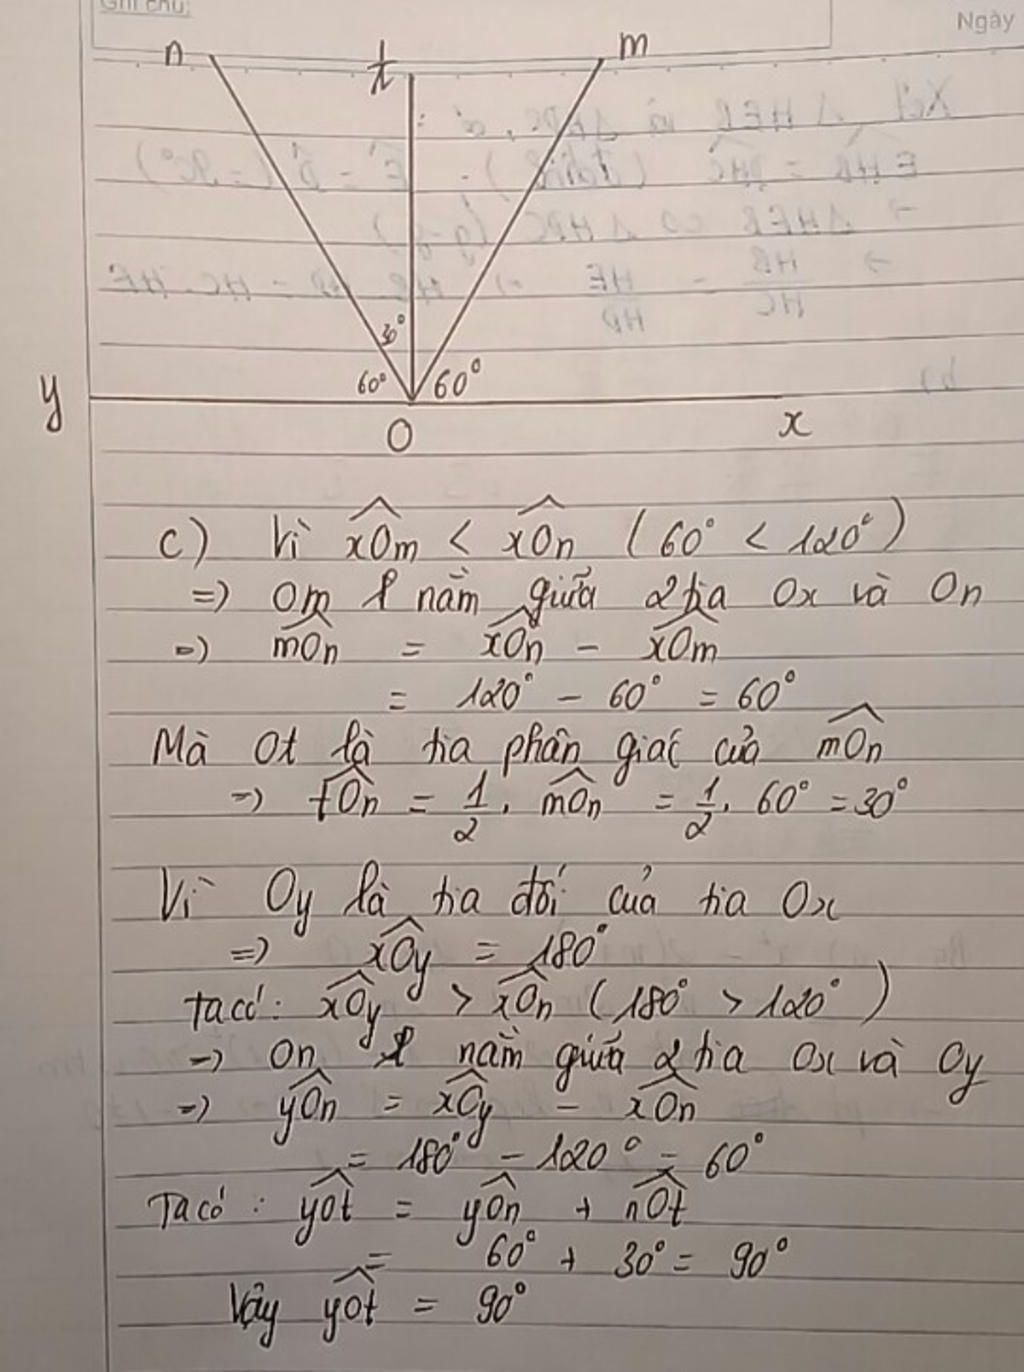 Ghi chú:
Ngày
n t m
30°
60° 60°
y O x
c) Vì xOm < xOn (60° < 120°)
=> Om nằm giữa 2 tia Ox và On
=> mOn = xOn - xOm
= 120° - 60° = 60°
Mà Ot là tia phân giác của mOn
=> tOn = 1/2 . mOn = 1/2 . 60° = 30°
Vì Oy là tia đối của tia Ox
=> xOy = 180°
Ta có: xOy > xOn (180° > 120°)
=> On nằm giữa 2 tia Ox và Oy
=> yOn = xOy - xOn
= 180° - 120° = 60°
Ta có: yOt = yOn + nOt
= 60° + 30° = 90°
Vậy yOt = 90°